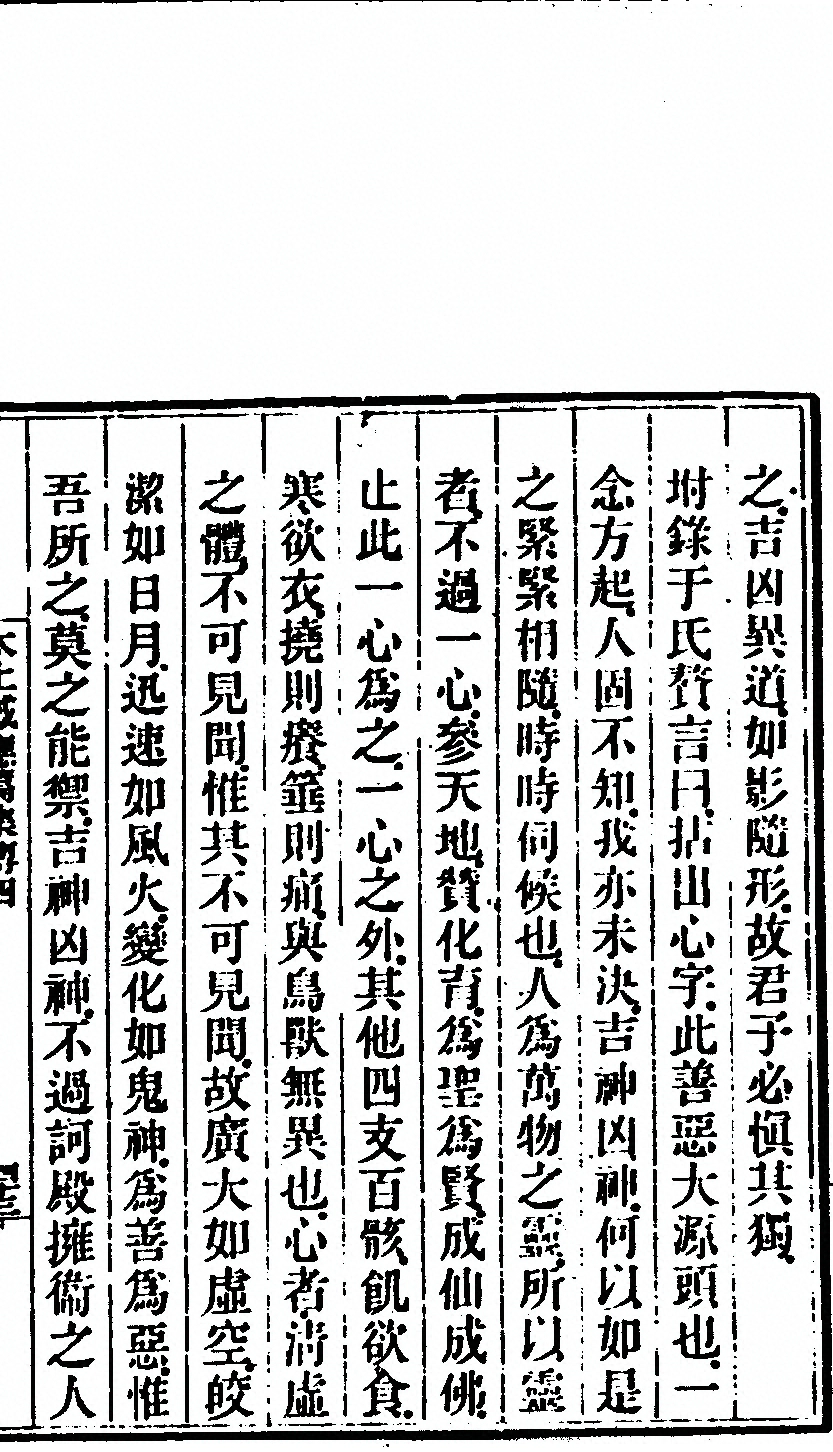 之。吉凶異道。如影隨形。故君子必慎其獨。
坿錄于氏贅言曰。拈出心字。此善惡大源頭也。一
念方起。人固不知。我亦未決。吉神凶神。何以如是
之緊緊相隨。時時伺候也。人爲萬物之靈。所以靈
者。不過一心。參天地。贊化育。爲聖爲賢。成仙成佛。
止此一心爲之。一心之外。其他四支百骸。飢欲食。
寒欲衣。撓則癢。箠則痛。與鳥獸無異也。心者。淸虛
之體。不可見聞。惟其不可見聞。故廣大如虛空。皎
潔如日月。迅速如風火。變化如鬼神。爲善爲惡。惟
吾所之。莫之能禦。吉神凶神。不過訶殿擁衞之人